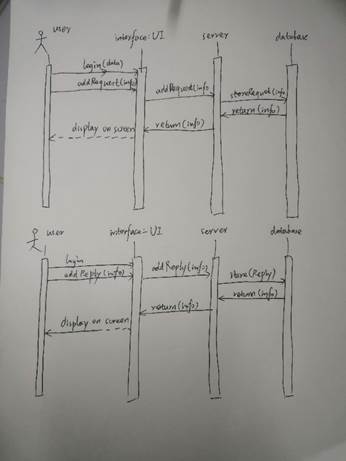 user interface:UI server database
login(data)
addRequest(info)
addRequest(info
storeRequest(info
return(info)
return(info)
display on screen
user interface:UI server database
login
addReply(info)
addReply(info)
store(Reply)
return(info)
return(info)
display on screen